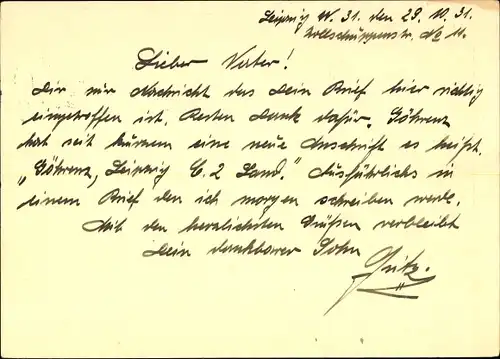 Leipzig W. 31. den 29. 10. 31.
No 11.
Lieber Vater!
Dir nur Nachricht das Dein Brief hier richtig
eingetroffen ist. Besten Dank dafür. Göhrenz
hat seit kurzem eine neue Anschrift es heißt
"Göhrenz, Leipzig C. 2 Land." Ausführlichs in
einem Brief den ich morgen schreiben werde.
Mit den herzlichsten Grüßen verbleibt
Dein dankbarer Sohn
Fritz.